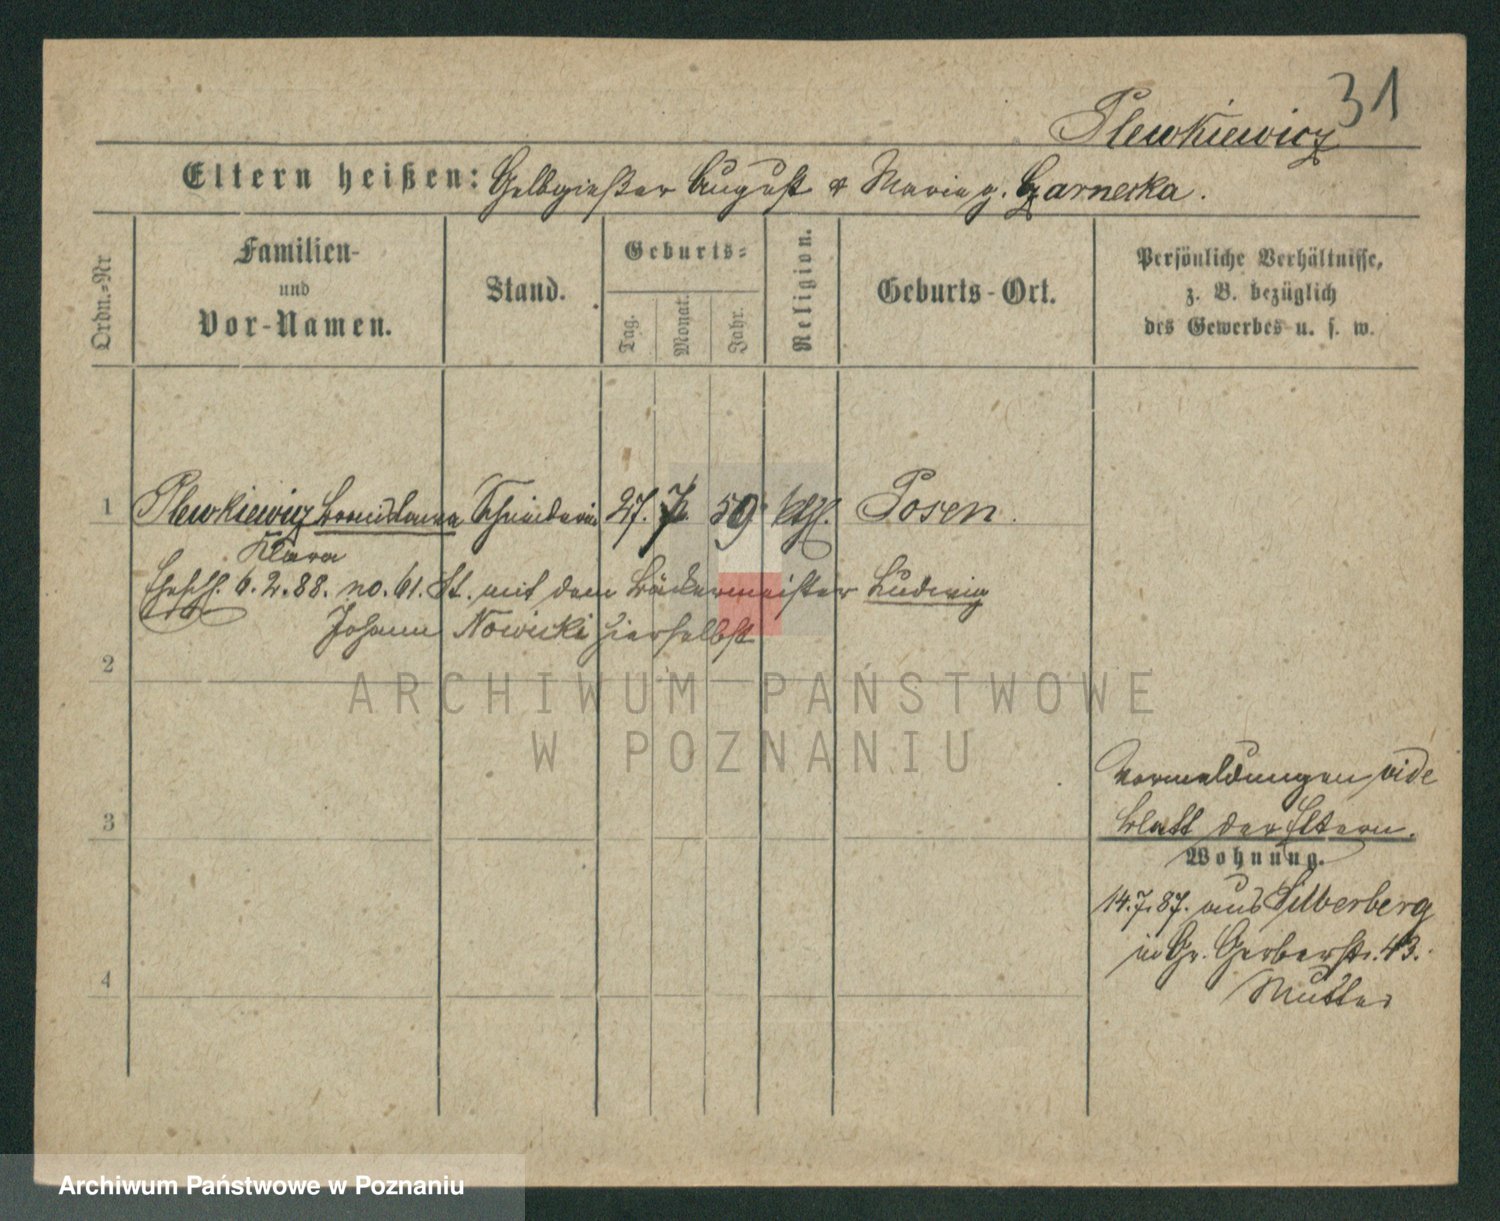 31
Plewkiewicz
Eltern heißen: Gelbgießer August & Marie g. Czarnecka.
Ordn.-Nr
Familien-
und
Vor-Namen.
Stand.
Geburts-
Tag.
Monat.
Jahr.
Religion.
Geburts-Ort.
Persönliche Verhältnisse,
z. B. bezüglich
des Gewerbes u. s. w.
1 Plewkiewicz Bronislawa Schneiderin 27. 7. 59. kth. Posen.
Klara
Ehesch. 6.2.88. no. 61. St. mit dem Bäckermeister Ludwig
Johann Nowicki hierselbst
2
ARCHIWUM PAŃSTWOWE
W POZNANIU
Vormeldungen vide
3 Blatt der Eltern.
Wohnung.
14.7.87. aus Silberberg
in Gr. Gerberstr. 43.
4 Mutter
Archiwum Państwowe w Poznaniu